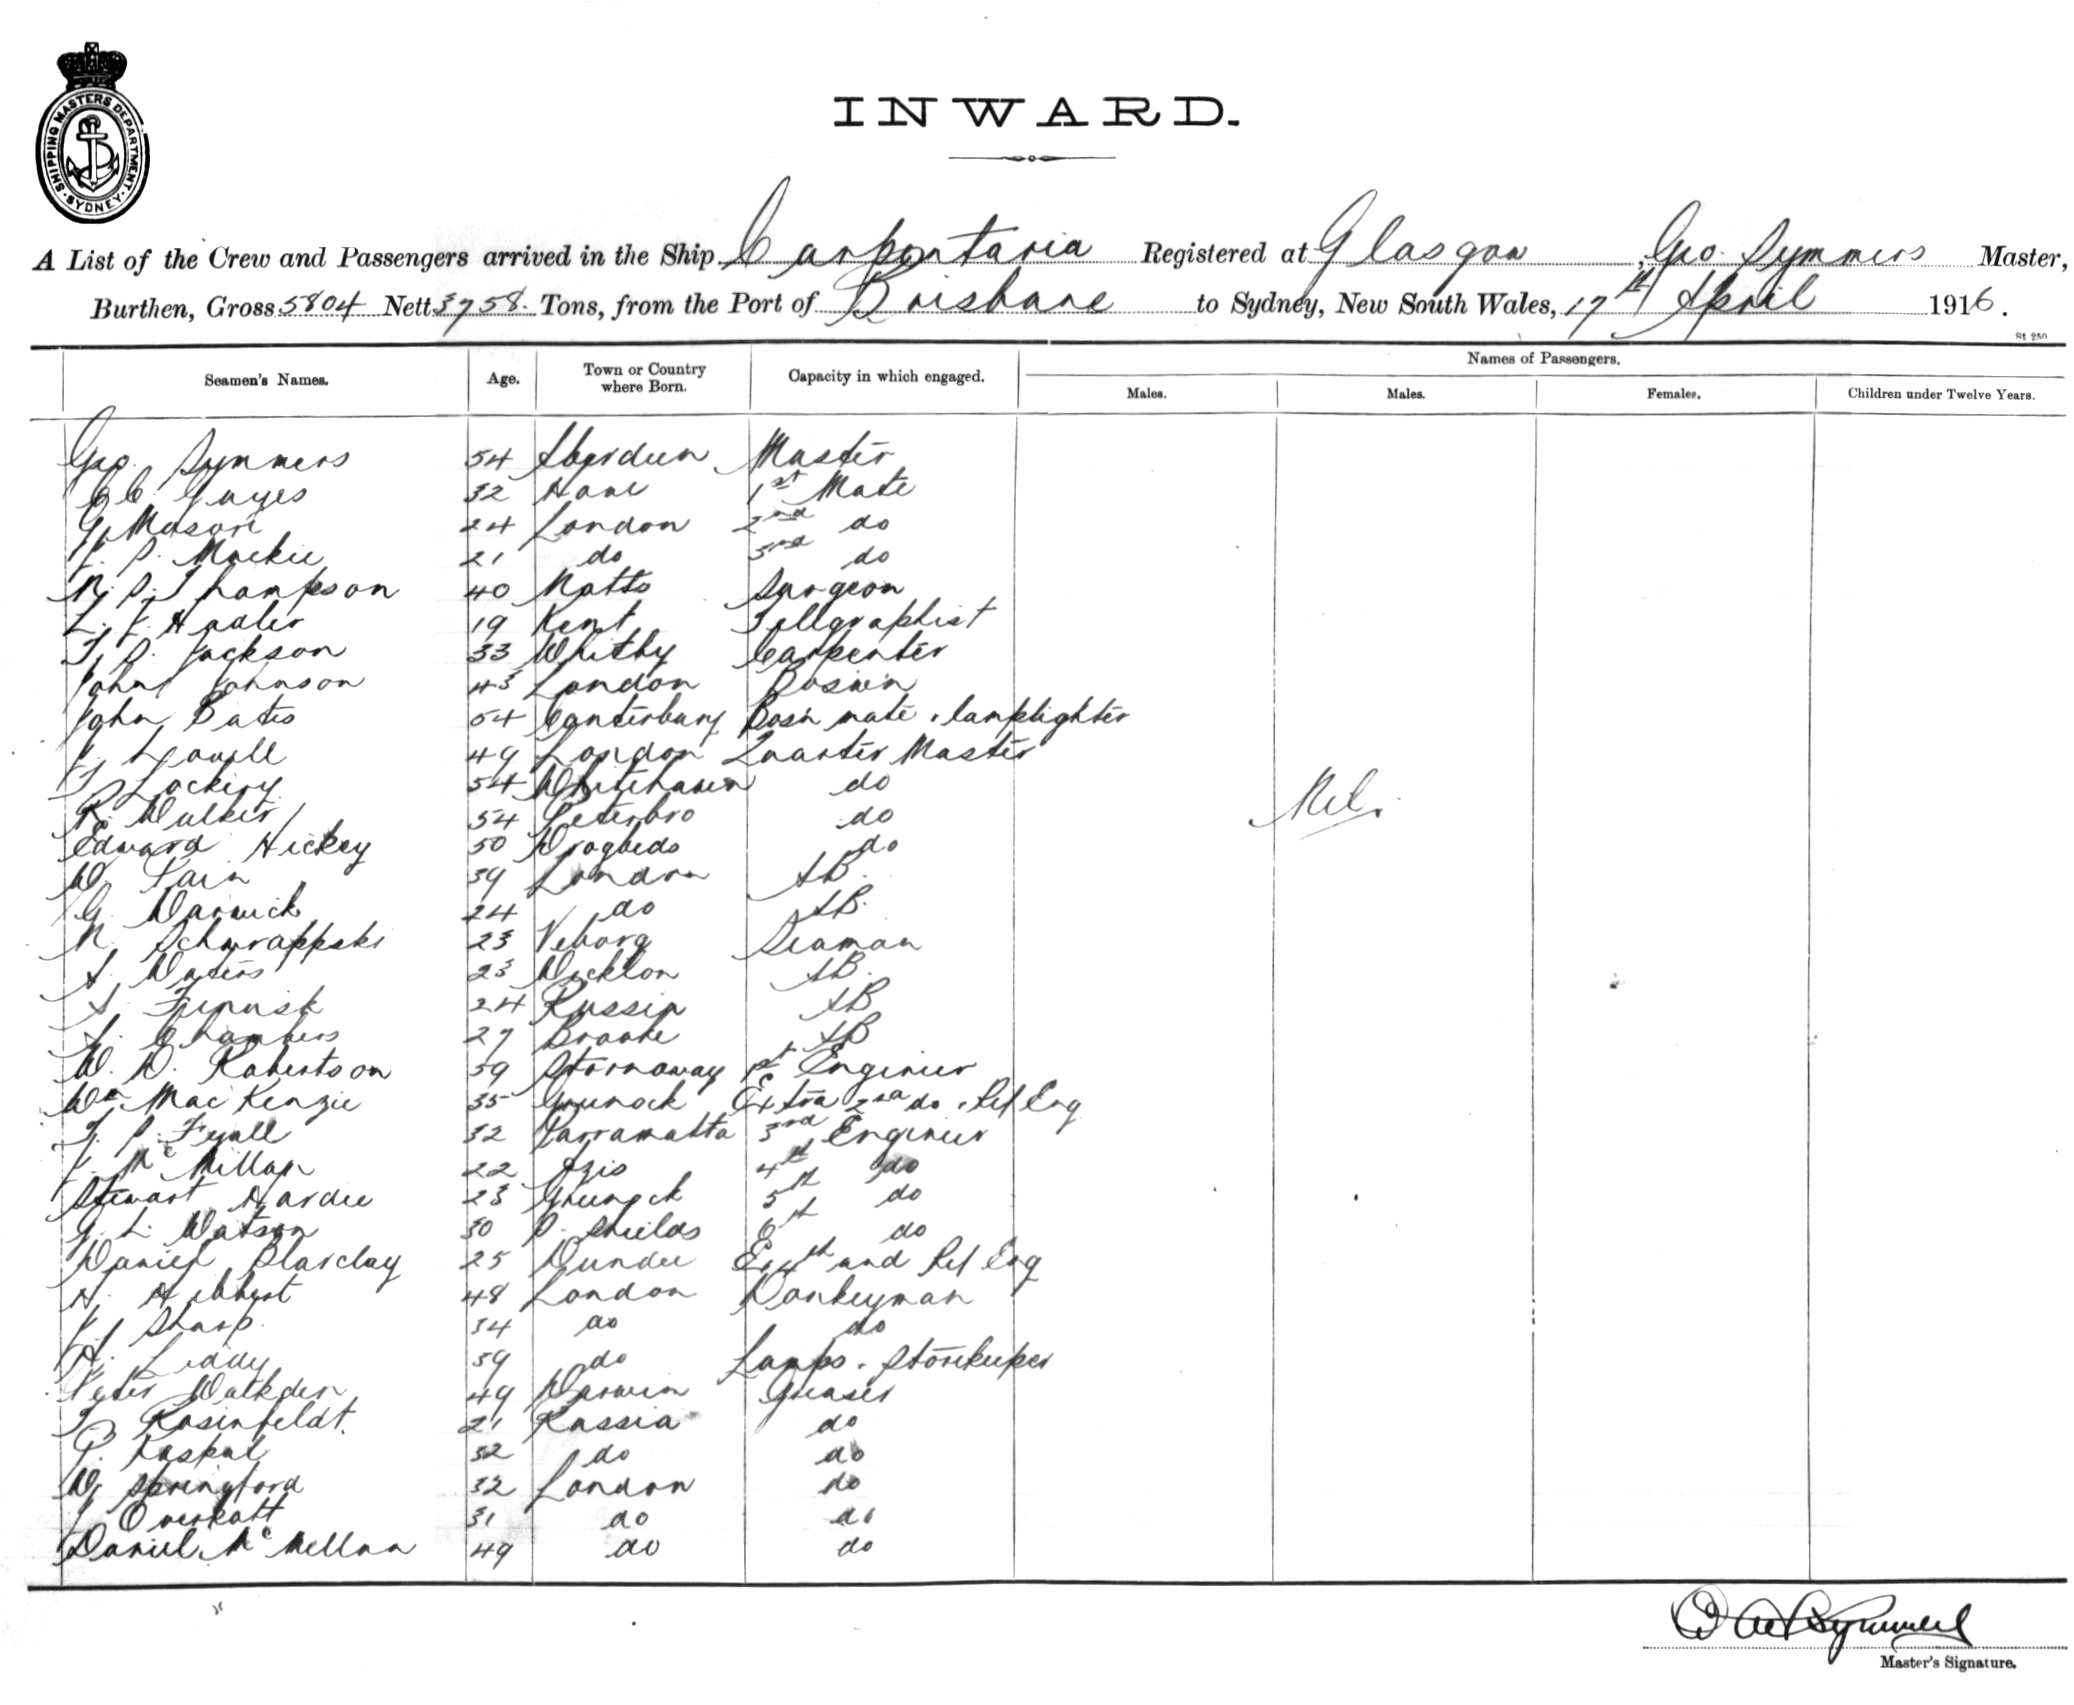 SHIPPING MASTERS DEPARTMENT. SYDNEY
INWARD.
A List of the Crew and Passengers arrived in the Ship Carpentaria Registered at Glasgow, Geo. Symmers Master,
Burthen, Gross 5804 Nett 3758 Tons, from the Port of Brisbane to Sydney, New South Wales, 17th April 1916.
St 250
Names of Passengers.
Seamen's Names. Age. Town or Country where Born. Capacity in which engaged. Males. Males. Females. Children under Twelve Years.
Geo. Symmers 54 Aberdeen Master
C C Gayes 32 1st Mate
G Mason 24 London 2nd do
J. P. Mackie 21 do 3rd do
N. P. Thompson 40 Notts Surgeon
L. J. Hadler 19 Kent Tellgraphist
T. P. Jackson 33 Whitby Carpenter
John Johnson 43 London Bosun
John Bates 54 Canterbury Bosn mate & lamplighter
J. Lovell 49 London Quarter Master
T Lockery 54 Whitehaven do
R. Walker 54 Peterbro do
Nil.
Edward Hickey 50 Drogheda do
W. Pain 39 London AB.
G. Warwick 24 do AB.
N. Schwrappski 23 Veborg Seaman
A. Waters 23 Wicklow AB.
A. 24 Russia AB
A. Chambers 27 AB
W. D. Robertson 39 Stornaway 1st Engineer
Wm MacKenzie 35 Greenock Extra 2nd do & Ref Eng
T. P. Fyall 32 Parramatta 3rd Engineer
J. McMillan 22 4th do
Stewart Hardie 23 Greenock 5th do
G. L. Watson 30 S. Shields 6th do
Daniel Blarclay 25 Dundee Ex 4th and Ref Eng
H. Hibbert 48 London Donkeyman
J. Sharp. 34 do do
H. Liddy 39 do Lamps & Storekeeper
Peter Walkden 49 Darwen Greaser
T. Rosenfeldt. 21 Russia do
P. Kaskal 32 do do
W. Springford 32 London do
J Overhatt 31 do do
Daniel McMillan 49 do do
Master's Signature.